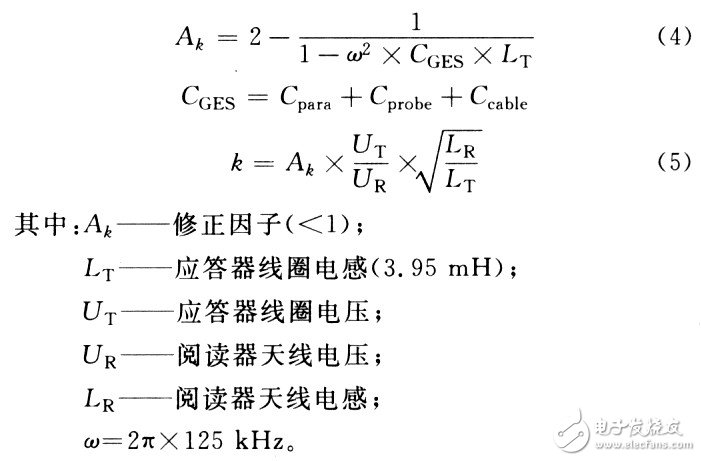 A_k = 2 − 1/(1 − ω² × C_GES × L_T) (4)
C_GES = C_para + C_probe + C_cable
k = A_k × U_T/U_R × √(L_R/L_T) (5)
其中:A_k——修正因子(<1);
L_T——应答器线圈电感(3.95 mH);
U_T——应答器线圈电压;
U_R——阅读器天线电压;
L_R——阅读器天线电感;
ω=2π×125 kHz。
电子发烧友
www.elecfans.com